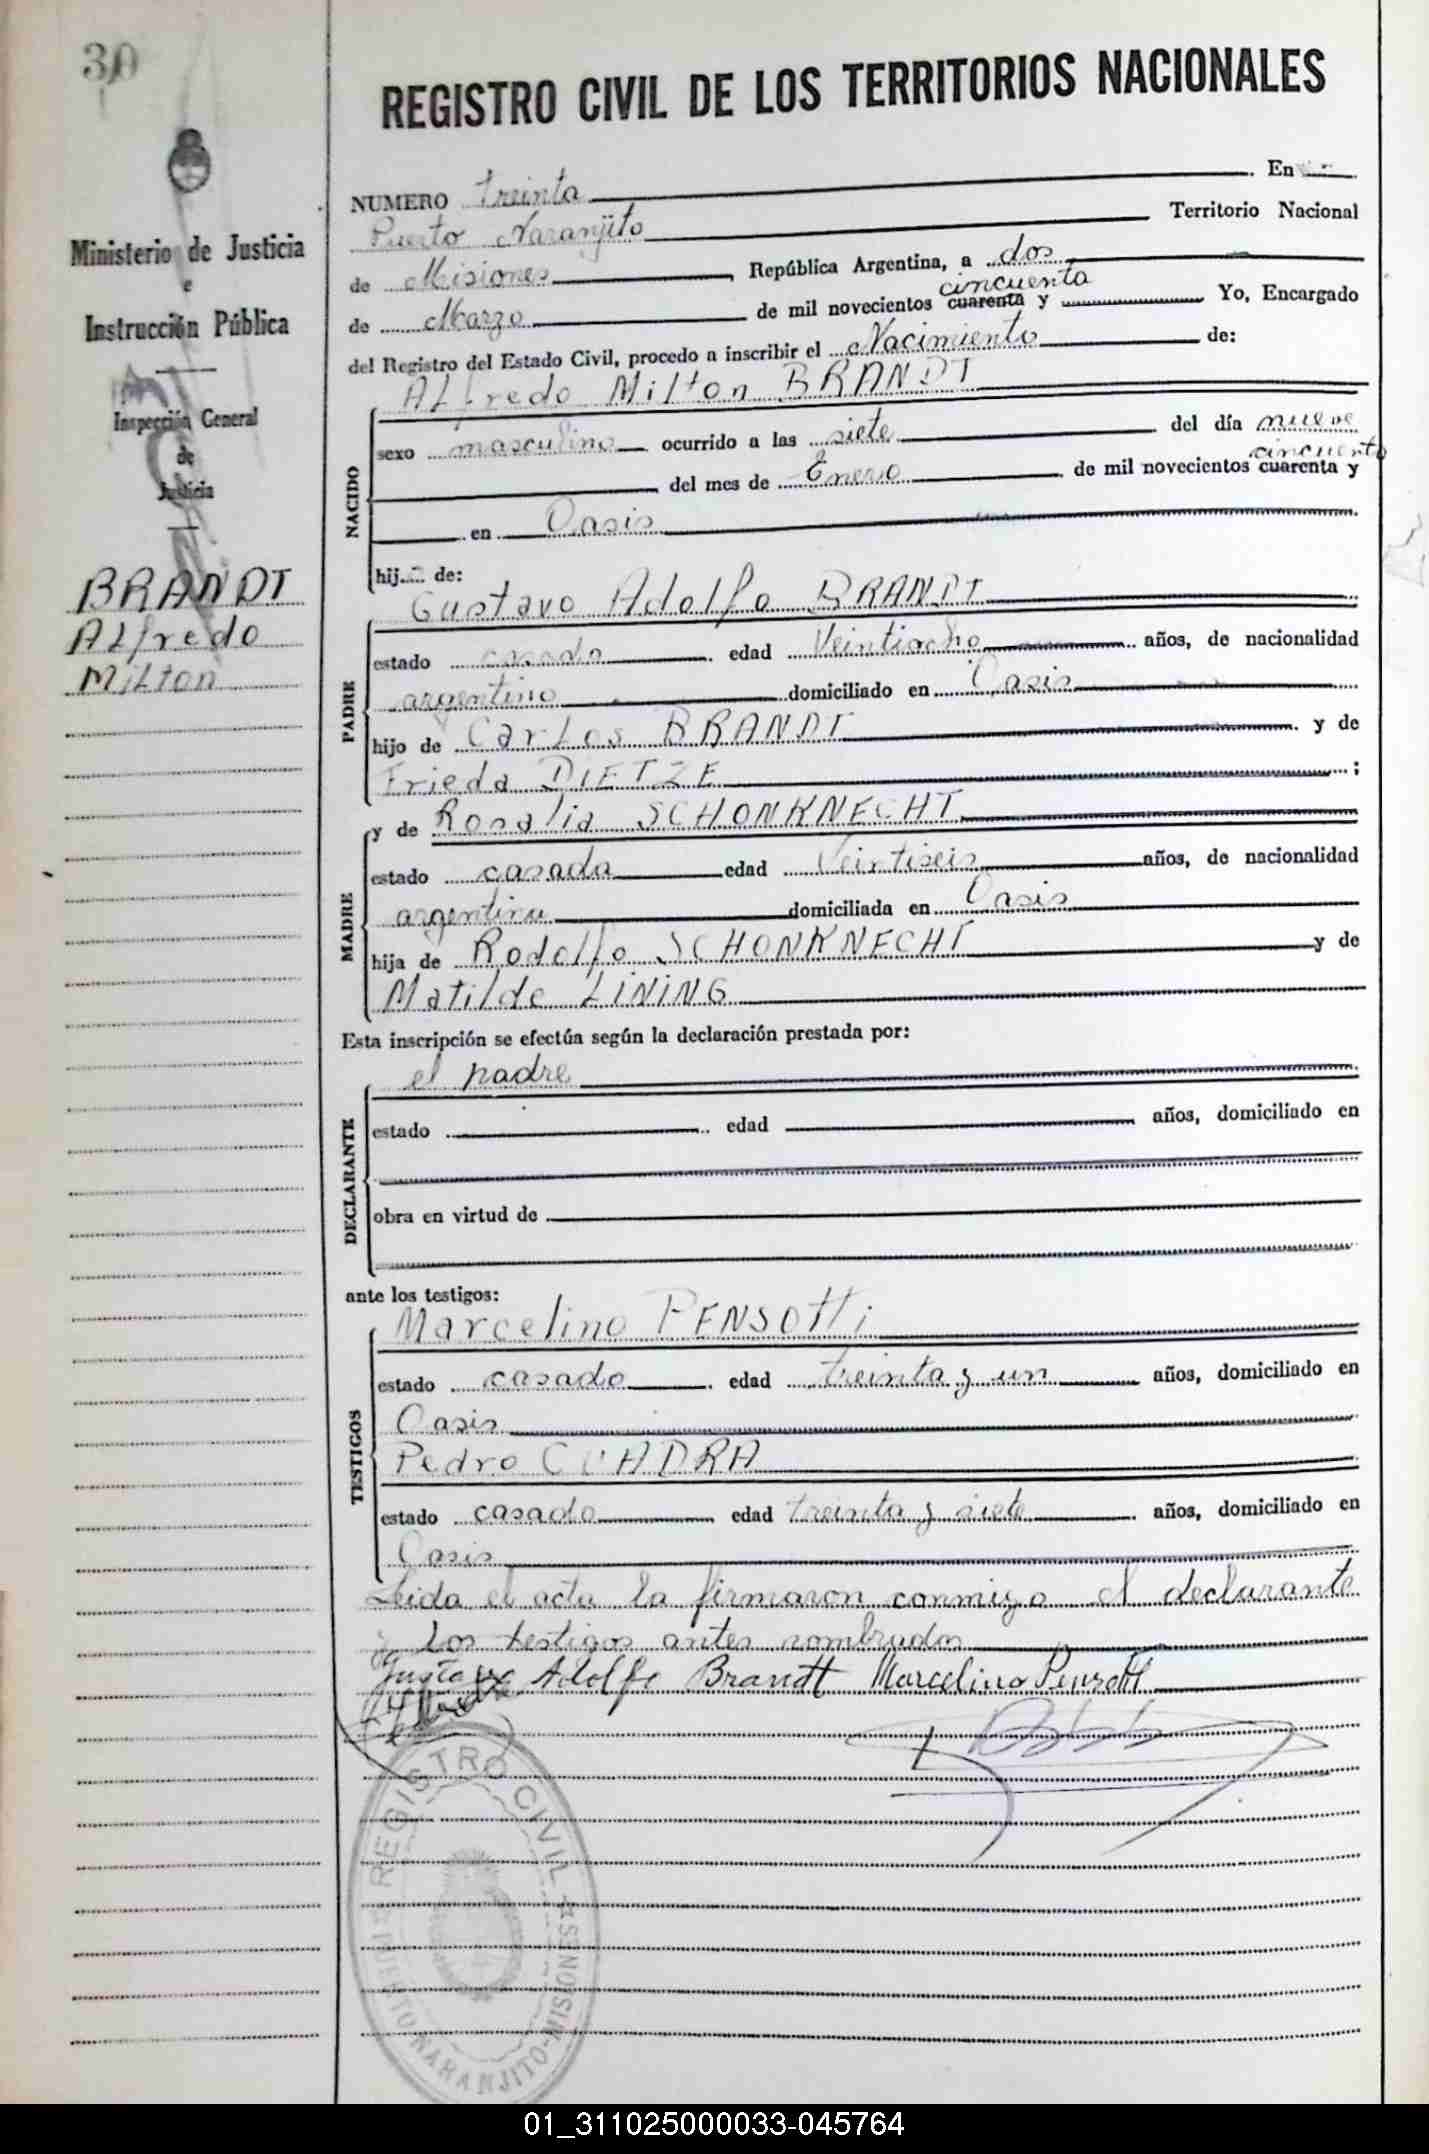 30
Ministerio de Justicia
e
Instrucción Pública
Inspección General
de
Justicia
BRANDT
Alfredo
Milton
REGISTRO CIVIL DE LOS TERRITORIOS NACIONALES
NUMERO Treinta En
Puerto Naranjito Territorio Nacional
de Misiones, República Argentina, a dos
cincuenta
de Marzo de mil novecientos cuarenta y Yo, Encargado
del Registro del Estado Civil, procedo a inscribir el Nacimiento de:
NACIDO
Alfredo Milton BRANDT
sexo masculino ocurrido a las siete del día nueve
cincuenta
del mes de Enero de mil novecientos cuarenta y
en Oasis
hij de:
PADRE
Gustavo Adolfo BRANDT
estado casado edad Veintiocho años, de nacionalidad
argentino domiciliado en Oasis
hijo de Carlos BRANDT y de
Frieda DIETZE;
MADRE
y de Rosalia SCHONKNECHT
estado casada edad Veintiseis años, de nacionalidad
argentina domiciliada en Oasis
hija de Rodolfo SCHONKNECHT y de
Matilde LINING
Esta inscripción se efectúa según la declaración prestada por:
DECLARANTE
el padre
estado edad años, domiciliado en
obra en virtud de
ante los testigos:
TESTIGOS
Marcelino PENSOTTi
estado casado edad treinta y un años, domiciliado en
Oasis
Pedro CUADRA
estado casado edad treinta y siete años, domiciliado en
Oasis
Leida el acta la firmaron conmigo el declarante
y los testigos antes nombrados
Gustavo Adolfo Brandt Marcelino Pensotti
REGISTRO CIVIL
PUERTO NARANJITO-MISIONES
01_311025000033-045764